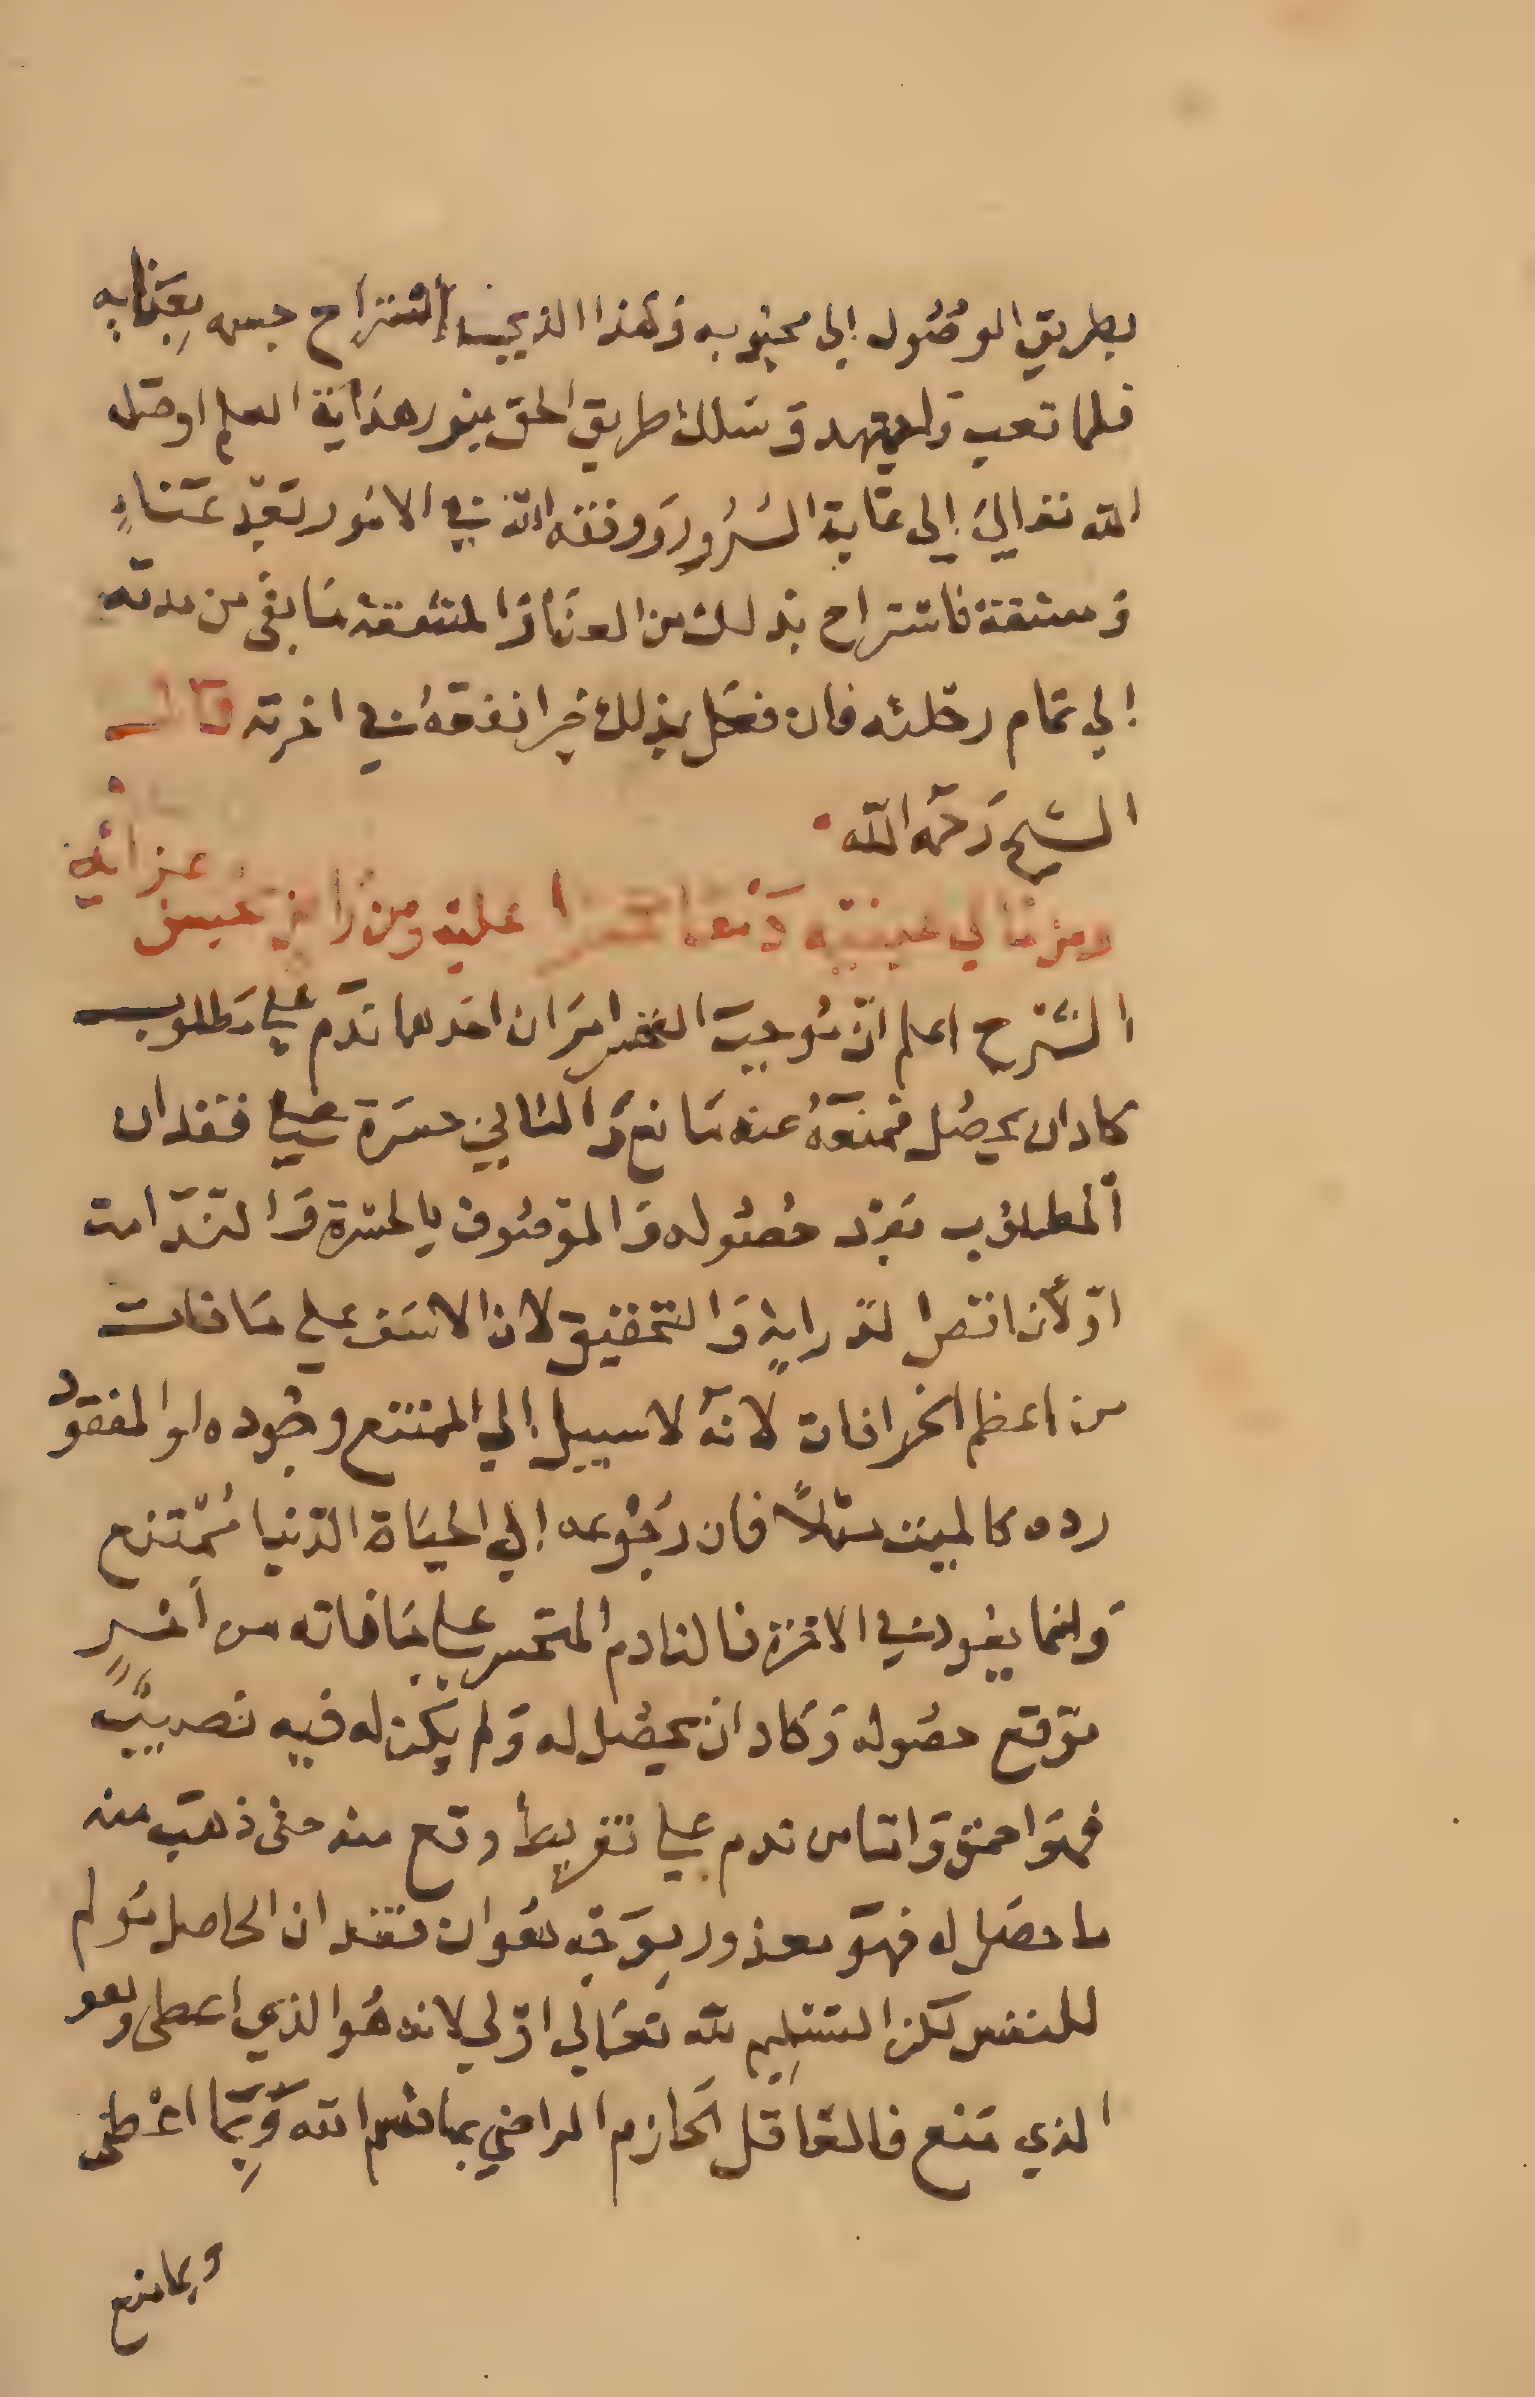 بطريق الوصُول إلى محبُوبه وَهذا الذي استراح جسمه بِعَذَابه
فلما تعب وَاجتهد وَسَلك طريق الحق بنور هدَاية العلم اوصَله
الله تعالى إلى غَاية السُرُور وَوفقه الله في الامُور بَعْد عَنَاءٍ
وَمشقة فاستراح بذلك من العنَا وَالمشقة مَا بقى من مدته
إلى تمام رحلته فان فعَل بذلك خيرا نفعَهُ في اخرته قال
الشيخ رَحمَه الله
ومن عليه ومن
الشَرح اعلم انّ مُوجبَ امرَان احَدهما ندَم على مَطلوب
كاد ان يحصُل فمنعَهُ عنه مَانع وَالثاني حسَرة على فقدان
المطلوُب بَعْد حُصُوله وَالموَصُوف بالحسَرة وَالندَامة
اوّلاً ناقص الدرَاية وَالتحقيق لان الاسَف على مَا فات
من اعظم الخرافات لانهُ لا سبيل إلى الممتنع وجُوده او المفقود
رده كالميت مثلاً فان رجُوعه إلى الحيَاة الدنيا مُمتنع
وَانما يعُود في الاخرة فالنادم المتحسر على مَا فاته من امْرٍ
توَقع حصُوله وَكاد ان يحصُل له وَلم يكن له فيه نصيبٌ
فهوَ احمق وَامّا من ندم على تفريط وقع منه حتى ذهبَ منه
ما حصَل له فهوَ معذور بوَجْه هوَ ان فقدان الحاصل مُولم
للنفس لكن التسْلِيم لله تعَالى اوْلى لانه هُو الذي اعطى وهو
الذي مَنع فالعَاقل الحَازم الراضي بما قسَم الله وَبِمَا اعْطى
وبما منع